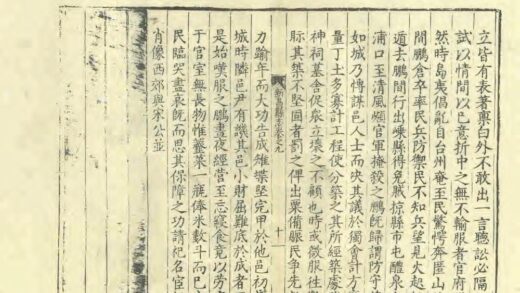 立皆有表著禀白外不敢出一言聽訟必隔
試以情間以巳意折中之無不輸服者官府
然時島夷倡亂自台州奄至民驚愕奔匿山
間鵬倉卒率民兵防禦民不知兵望見火起
遁去鵬間行出嵊縣得免賊掠縣市屯醴泉
蒲口至清風嶺官軍掩殺之鵬既歸謂防守
如城乃博謀邑人士而央其議於獨會計方
量丁土多寡計工程使分築之其所經築處
神祠墓舍促衆立壞之不顧也時或微服往
眎其築不堅固者罰之俾出粟備賑民爭先
新昌縣志卷之九 十一
力踰年而大功告成雉堞堅完甲於他邑初
城時隣邑尹有譏其邑小財屈難底於成者
是始服之鵬晝夜經營至忘寢食竟以勞
于官室無長物惟虀菜一甕俸米數斗而巳
民臨哭盡哀既而思其保障之功請祀名宦
肖像西郊與宋公並